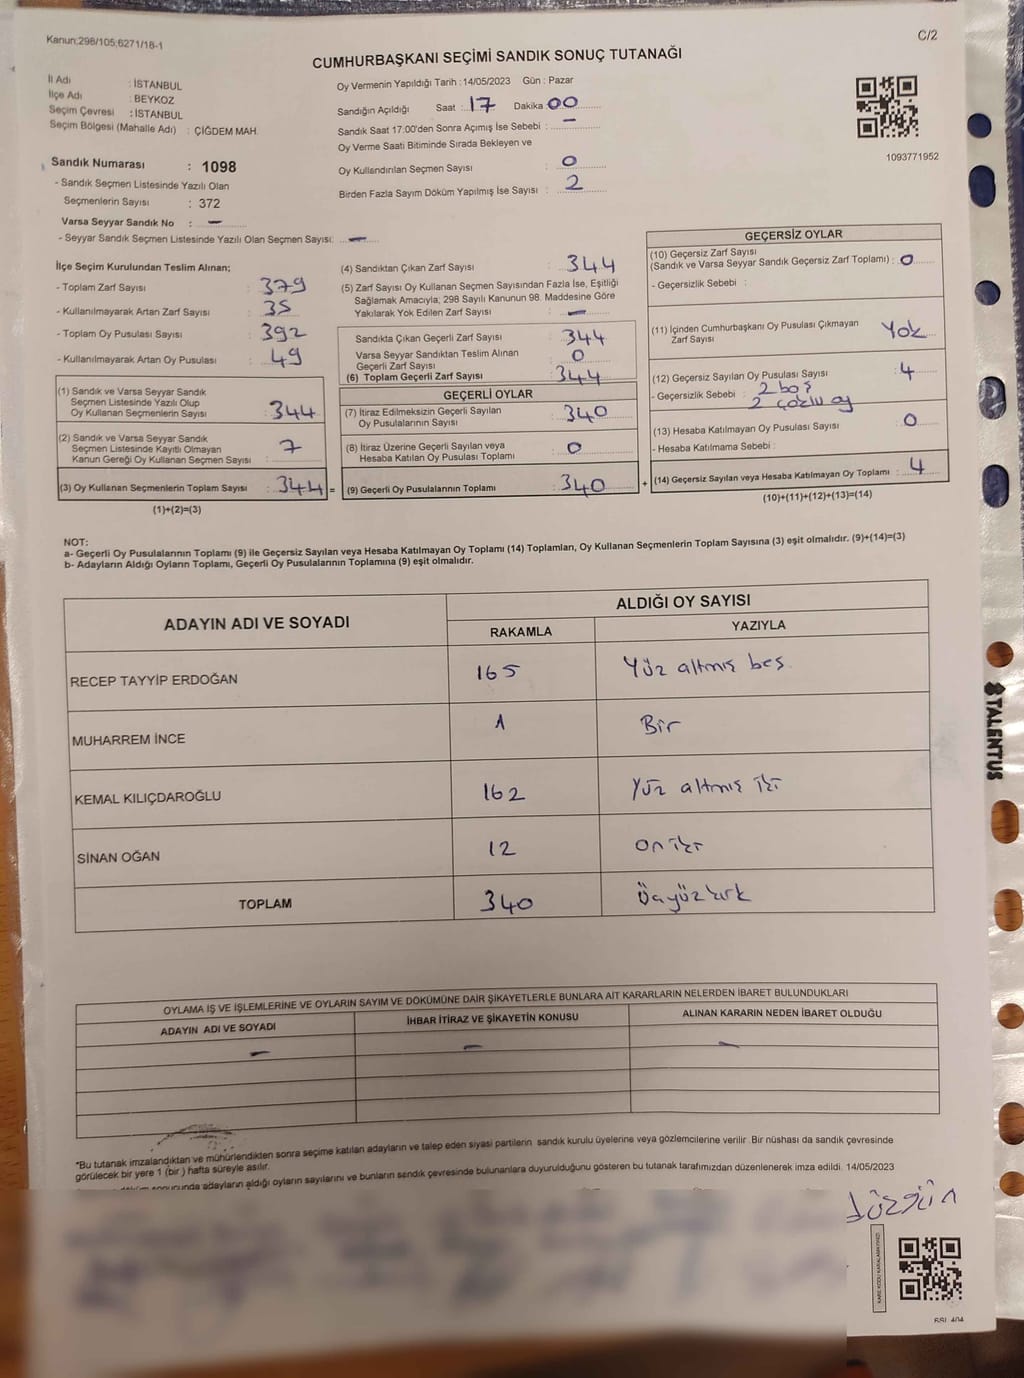 Kanun;298/105;6271/18-1
C/2
CUMHURBAŞKANI SEÇİMİ SANDIK SONUÇ TUTANAĞI
İl Adı : İSTANBUL
İlçe Adı : BEYKOZ
Seçim Çevresi : İSTANBUL
Seçim Bölgesi (Mahalle Adı) : ÇİĞDEM MAH.
Oy Vermenin Yapıldığı Tarih : 14/05/2023 Gün : Pazar
Sandığın Açıldığı Saat : 17 Dakika 00
Sandık Saat 17:00'den Sonra Açımış İse Sebebi : –
Oy Verme Saati Bitiminde Sırada Bekleyen ve
Oy Kullandırılan Seçmen Sayısı : 0
Birden Fazla Sayım Döküm Yapılmış İse Sayısı : 2
1093771952
Sandık Numarası : 1098
- Sandık Seçmen Listesinde Yazılı Olan
Seçmenlerin Sayısı : 372
Varsa Seyyar Sandık No : –
- Seyyar Sandık Seçmen Listesinde Yazılı Olan Seçmen Sayısı: –
İlçe Seçim Kurulundan Teslim Alınan;
- Toplam Zarf Sayısı : 379
- Kullanılmayarak Artan Zarf Sayısı : 35
- Toplam Oy Pusulası Sayısı : 392
- Kullanılmayarak Artan Oy Pusulası : 49
(1) Sandık ve Varsa Seyyar Sandık
Seçmen Listesinde Yazılı Olup
Oy Kullanan Seçmenlerin Sayısı : 344
(2) Sandık ve Varsa Seyyar Sandık
Seçmen Listesinde Kayıtlı Olmayan
Kanun Gereği Oy Kullanan Seçmen Sayısı : 7
(3) Oy Kullanan Seçmenlerin Toplam Sayısı : 344 =
(1)+(2)=(3)
(4) Sandıktan Çıkan Zarf Sayısı : 344
(5) Zarf Sayısı Oy Kullanan Seçmen Sayısından Fazla İse, Eşitliği
Sağlamak Amacıyla; 298 Sayılı Kanunun 98. Maddesine Göre
Yakılarak Yok Edilen Zarf Sayısı : –
Sandıkta Çıkan Geçerli Zarf Sayısı : 344
Varsa Seyyar Sandıktan Teslim Alınan
Geçerli Zarf Sayısı : 0
(6) Toplam Geçerli Zarf Sayısı : 344
GEÇERLİ OYLAR
(7) İtiraz Edilmeksizin Geçerli Sayılan
Oy Pusulalarının Sayısı : 340
(8) İtiraz Üzerine Geçerli Sayılan veya
Hesaba Katılan Oy Pusulası Toplamı : 0
(9) Geçerli Oy Pusulalarının Toplamı : 340 +
GEÇERSİZ OYLAR
(10) Geçersiz Zarf Sayısı
(Sandık ve Varsa Seyyar Sandık Geçersiz Zarf Toplamı) : 0
- Geçersizlik Sebebi :
(11) İçinden Cumhurbaşkanı Oy Pusulası Çıkmayan
Zarf Sayısı : Yok
(12) Geçersiz Sayılan Oy Pusulası Sayısı : 4
- Geçersizlik Sebebi : 2 boş
2 oy
(13) Hesaba Katılmayan Oy Pusulası Sayısı : 0
- Hesaba Katılmama Sebebi :
(14) Geçersiz Sayılan veya Hesaba Katılmayan Oy Toplamı : 4
(10)+(11)+(12)+(13)=(14)
NOT:
a- Geçerli Oy Pusulalarının Toplamı (9) ile Geçersiz Sayılan veya Hesaba Katılmayan Oy Toplamı (14) Toplamları, Oy Kullanan Seçmenlerin Toplam Sayısına (3) eşit olmalıdır. (9)+(14)=(3)
b- Adayların Aldığı Oyların Toplamı, Geçerli Oy Pusulalarının Toplamına (9) eşit olmalıdır.
ADAYIN ADI VE SOYADI ALDIĞI OY SAYISI
RAKAMLA YAZIYLA
RECEP TAYYİP ERDOĞAN 165 Yüz altmış beş
MUHARREM İNCE 1 Bir
KEMAL KILIÇDAROĞLU 162 Yüz altmış iki
SİNAN OĞAN 12 On iki
TOPLAM 340 Üçyüzkırk
OYLAMA İŞ VE İŞLEMLERİNE VE OYLARIN SAYIM VE DÖKÜMÜNE DAİR ŞİKAYETLERLE BUNLARA AİT KARARLARIN NELERDEN İBARET BULUNDUKLARI
ADAYIN ADI VE SOYADI İHBAR İTİRAZ VE ŞİKAYETİN KONUSU ALINAN KARARIN NEDEN İBARET OLDUĞU
– – –
*Bu tutanak imzalandıktan ve mühürlendikten sonra seçime katılan adayların ve talep eden siyasi partilerin sandık kurulu üyelerine veya gözlemcilerine verilir. Bir nüshası da sandık çevresinde
görülecek bir yere 1 (bir) hafta süreyle asılır.
adayların aldığı oyların sayılarını ve bunların sandık çevresinde bulunanlara duyurulduğunu gösteren bu tutanak tarafımızdan düzenlenerek imza edildi. 14/05/2023
düzgün
KARE KODU KARALAMAYINIZ!
TALENTUS